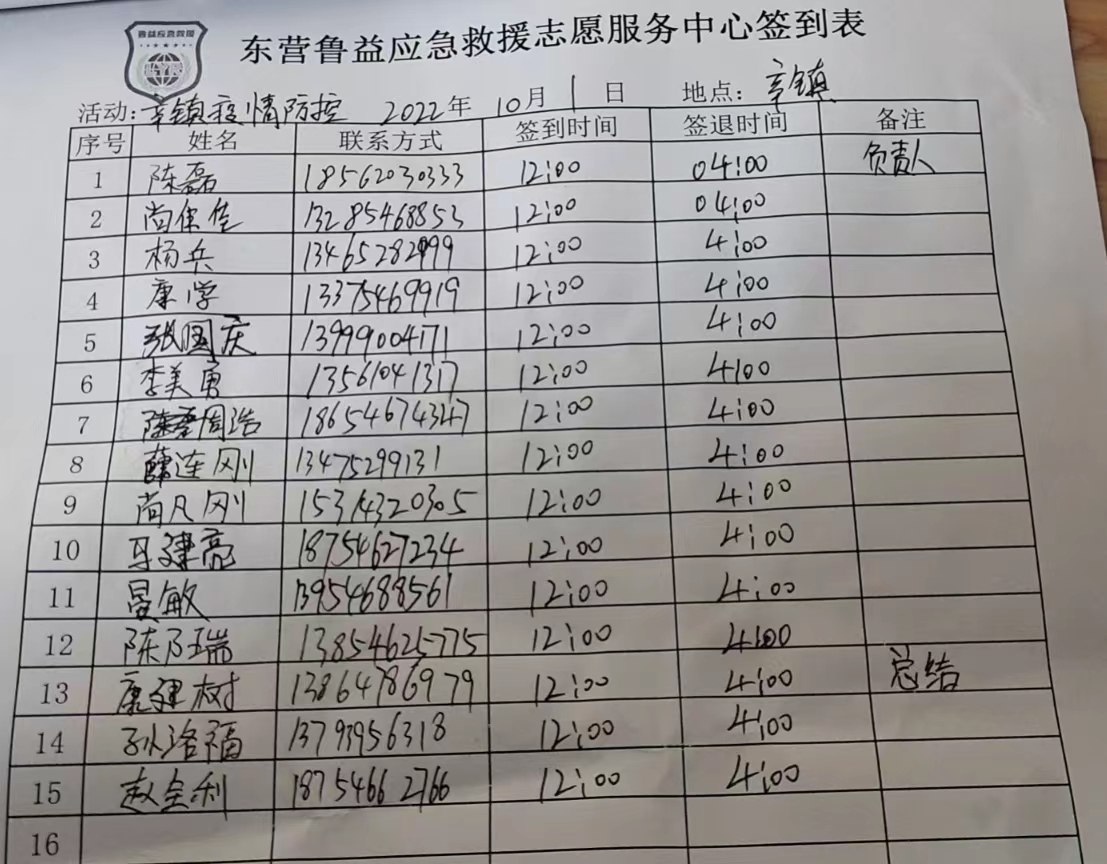 鲁益应急救援
东营鲁益应急救援志愿服务中心签到表
活动:辛镇疫情防控 2022年 10月 1 日 地点:辛镇
序号 姓名 联系方式 签到时间 签退时间 备注
1 陈磊 18562030333 12:00 04:00 负责人
2 尚佳佳 13285468853 12:00 04:00
3 杨兵 13465282999 12:00 4:00
4 康学 13375469919 12:00 4:00
5 张国庆 13999004171 12:00 4:00
6 李美勇 13561041317 12:00 4:00
7 周浩 18654674347 12:00 4:00
8 薛连刚 13475299131 12:00 4:00
9 尚凡刚 15314320305 12:00 4:00
10 马建亮 18754627234 12:00 4:00
11 晏敏 13954688561 12:00 4:00
12 陈瑞 13854625775 12:00 4:00
13 康建树 13864786979 12:00 4:00 总结
14 孙洛福 13793956318 12:00 4:00
15 赵全利 18754662766 12:00 4:00
16